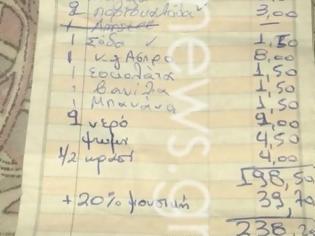 2 πορτοκαλάδα 3,00
1 σόδα 1,50
1 κ.γ Άσπρο 8,00
1 σοκολάτα 1,50
1 βανίλα 1,50
1 Μπανάνα 1,50
9 νερό 9,00
ψωμί 4,50
1/2 κρασί 4,00
198,50
+20% μουσική 39,70
238,20
news.gr